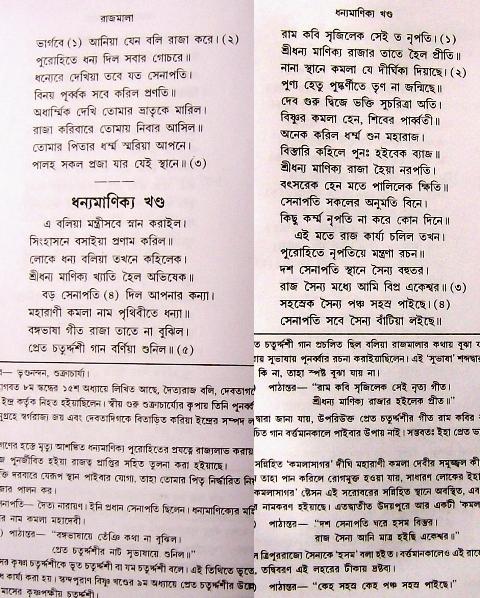 রাজমালা
ভার্গবে (১) আনিয়া যেন বলি রাজা করে। (২)
পুরোহিতে ধন্য দিল সবার গোচরে॥
ধন্যেরে দেখিয়া তবে যত সেনাপতি।
বিনয় পূর্ব্বক সবে করিল প্রণতি॥
অধার্ম্মিক দেখি তোমার ভ্রাতৃকে মারিল।
রাজা করিবারে তোমায় নিবার আসিল॥
তোমার পিতার ধর্ম্ম স্মরিয়া আপনে।
পালহ সকল প্রজা যার যেই স্থানে॥ (৩)
ধন্যমাণিক্য খণ্ড
এ বলিয়া মন্ত্রীসবে স্নান করাইল।
সিংহাসনে বসাইয়া প্রণাম করিল॥
লোকে ধন্য বলিয়া তখনে কহিলেক।
শ্রীধন্য মাণিক্য খ্যাতি হৈল অভিষেক॥
বড় সেনাপতি (৪) দিল আপনার কন্যা।
মহারাণী কমলা নাম পৃথিবীতে ধন্যা॥
বঙ্গভাষা গীত রাজা তাতে না বুঝিল।
প্রেত চতুর্দ্দশী গান বর্ণিয়া শুনিল॥ (৫)
— ভৃগুনন্দন, শুক্রাচার্য্য।
গবত ৮ম স্কন্ধের ১৫শ অধ্যায়ে লিখিত আছে, দৈত্যরাজ বলি, দেবতাগণে
ইন্দ্র কর্ত্তৃক নিহত হইয়াছিলেন। স্বীয় গুরু শুক্রাচার্য্যের কৃপায় তিনি পুনর্ব্ব
নুগ্রহে স্বর্গরাজ্য জয় এবং দেবতাদিগকে বিতাড়িত করিয়া ইন্দ্রের সম্পদ
গণের হস্তে মৃত্যু আশঙ্কিত ধন্যমাণিক্য পুরোহিতের প্রযত্নে রাজ্যলাভ করায়
পুনর্জীবিত হইয়া রাজত্ব প্রাপ্তির সহিত তুলনা করা হইয়াছে।
ক্তি দরবারে যেরূপ স্থান পাইবার যোগ্য, তাহা তোমার পিতৃ নির্দ্ধারিত
জার পালন কর।
সেনাপতি— দৈত্য নারায়ণ; ইনি প্রধান সেনাপতি ছিলেন। ধন্যমাণিক্যের
নাম কমলা মহাদেবী।
পাঠান্তর— “বঙ্গভাষায়ে তেঁঞি কথা না বুঝিল।
প্রেত চতুর্দ্দশীর নাট সুভাষায়ে শুনিল॥”
কৃষ্ণা চতুর্দ্দশীকে ভূত চতুর্দ্দশী বা যম চতুর্দ্দশী বলে। এই তিথিতে
কার্য্য করা হয়। স্কন্দপুরাণ বিষ্ণু খণ্ডের ৯ম অধ্যায়ে প্রেত চতুর্দ্দশীর
মাসের কৃষ্ণপক্ষীয় চতুর্দ্দশী।
ধন্যমাণিক্য খণ্ড
রাম কবি সৃজিলেক সেই ত নৃপতি। (১)
শ্রীধন্য মাণিক্য রাজার তাতে হৈল প্রীতি॥
নানা স্থানে কমলা যে দীর্ঘিকা দিয়াছে। (২)
পুণ্য হেতু পুষ্কর্ণীতে তৃণ না জন্মিছে॥
দেব গুরু দ্বিজে ভক্তি সুচরিত্রা অতি।
বিষ্ণুর কমলা হেন, শিবের পার্ব্বতী॥
অনেক করিল ধর্ম্ম শুন মহারাজ।
বিস্তারি কহিলে পুনঃ হইবেক ব্যাজ॥
শ্রীধন্য মাণিক্য রাজা হৈয়া নরপতি।
বৎসরেক হেন মতে পালিলেক ক্ষিতি॥
সেনাপতি সকলের অনুমতি বিনে।
কিছু কর্ম্ম নৃপতি না করে কোন দিনে॥
এই মতে রাজ কার্য্য চলিল তখন।
পুরোহিতে নৃপতিয়ে মন্ত্রণা রচন॥
দশ সেনাপতি স্থানে সৈন্য বহুতর।
রাজ সৈন্য মধ্যে আমি বিপ্র একেশ্বর॥ (৩)
সহস্রেক সৈন্য পঞ্চ সহস্র পাইছে। (৪)
সেনাপতি সবে সৈন্য বাঁটিয়া লইছে॥
ত চতুর্দ্দশীর গান প্রচলিত ছিল বলিয়া রাজমালার কথায় বুঝা
য় সুভাষায় পুনর্ব্বার রচনা করাইয়াছিলেন। এই ‘সুভাষা’
কি না, তাহা স্পষ্ট বুঝা যায় না।
পাঠান্তর— “রাম কবি সৃজিলেক সেই নৃত্য গীত।
শ্রীধন্য মাণিক্য রাজার হইলেক প্রীত॥”
দ্বারা জানা যায়, উপরিউক্ত প্রেত চতুর্দ্দশীর গীত রাম কবির
চিত গান বর্ত্তমানকালে পাইবার উপায় নাই। সম্ভবতঃ ইহা প্রেত
সন্নিহিত ‘কমলাসাগর’ দীঘি মহারাণী কমলা দেবীর সমুজ্জ্বল
তাহা পান করিলে রোগমুক্ত হওয়া যায়, সাধারণ লোকের
কমলাসাগর’ ষ্টেসন এই সরোবরের সন্নিহিত স্থানে অবস্থিত,
নামকরণ হইয়াছে। এতদ্ব্যতীত উদয়পুরে আর একটী
পাঠান্তর— “দশ সেনাপতি ঘরে হসম বিস্তর।
রাজ সৈন্য আনি মাত্র হইছি একেশ্বর॥”
ত্রিপুররাজ্যে সৈন্যকে ‘হসম’ বলা হইত। বর্ত্তমানকালেও এই
তদ্বিবরণ এই লহরের টীকায় দ্রষ্টব্য।
পাঠান্তর— “কেহ সহস্র কেহ পঞ্চ সহস্র পাইছে।”